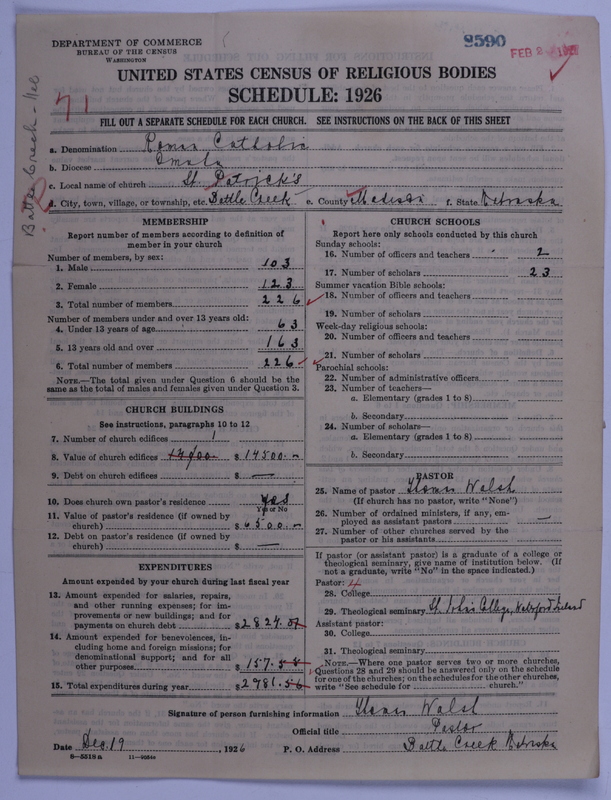 DEPARTMENT OF COMMERCE
BUREAU OF THE CENSUS
WASHINGTON
8590
FEB 2
UNITED STATES CENSUS OF RELIGIOUS BODIES
SCHEDULE: 1926
71
FILL OUT A SEPARATE SCHEDULE FOR EACH CHURCH. SEE INSTRUCTIONS ON THE BACK OF THIS SHEET
Battle Creek - Nec
a. Denomination Roman Catholic
b. Diocese Omaha
c. Local name of church St Patrick's
d. City, town, village, or township, etc. Battle Creek e. County Madison f. State Nebraska
MEMBERSHIP
Report number of members according to definition of
member in your church
Number of members, by sex:
1. Male 103
2. Female 123
3. Total number of members 226
Number of members under and over 13 years old:
4. Under 13 years of age 63
5. 13 years old and over 163
6. Total number of members 226
NOTE.—The total given under Question 6 should be
same as the total of males and females given under Question 3.
CHURCH BUILDINGS
See instructions, paragraphs 10 to 12
7. Number of church edifices 1
8. Value of church edifices $ 14500.—
9. Debt on church edifices $ —
10. Does church own pastor's residence Yes
Yes or No
11. Value of pastor's residence (if owned by
church) $ 6500.—
12. Debt on pastor's residence (if owned by
church) $ —
EXPENDITURES
Amount expended by your church during last fiscal year
13. Amount expended for salaries, repairs,
and other running expenses; for im-
provements or new buildings; and for
payments on church debt $ 2824.
14. Amount expended for benevolences, in-
cluding home and foreign missions; for
denominational support; and for all
other purposes $ 157.
15. Total expenditures during year $ 2981.56
CHURCH SCHOOLS
Report here only schools conducted by this church
Sunday schools:
16. Number of officers and teachers 2
17. Number of scholars 23
Summer vacation Bible schools:
18. Number of officers and teachers
19. Number of scholars
Week-day religious schools:
20. Number of officers and teachers
21. Number of scholars
Parochial schools:
22. Number of administrative officers
23. Number of teachers—
a. Elementary (grades 1 to 8)
b. Secondary
24. Number of scholars—
a. Elementary (grades 1 to 8)
b. Secondary
PASTOR
25. Name of pastor Walsh
(If church has no pastor, write "None")
26. Number of ordained ministers, if any, em-
ployed as assistant pastors —
27. Number of other churches served by the
pastor or his assistants
If pastor (or assistant pastor) is a graduate of a college or
theological seminary, give name of institution below. (If
not a graduate, write "No" in the space indicated.)
Pastor: 4
28. College
29. Theological seminary St John's College, Waterford Ireland
Assistant pastor:
30. College
31. Theological seminary
NOTE.—Where one pastor serves two or more churches,
Questions 28 and 29 should be answered only on the schedule
for one of the churches; on the schedules for the other churches,
write "See schedule for church."
Signature of person furnishing information Walsh
Official title Pastor
Date Dec. 19, 1926 P. O. Address Battle Creek Nebraska
8—5518a